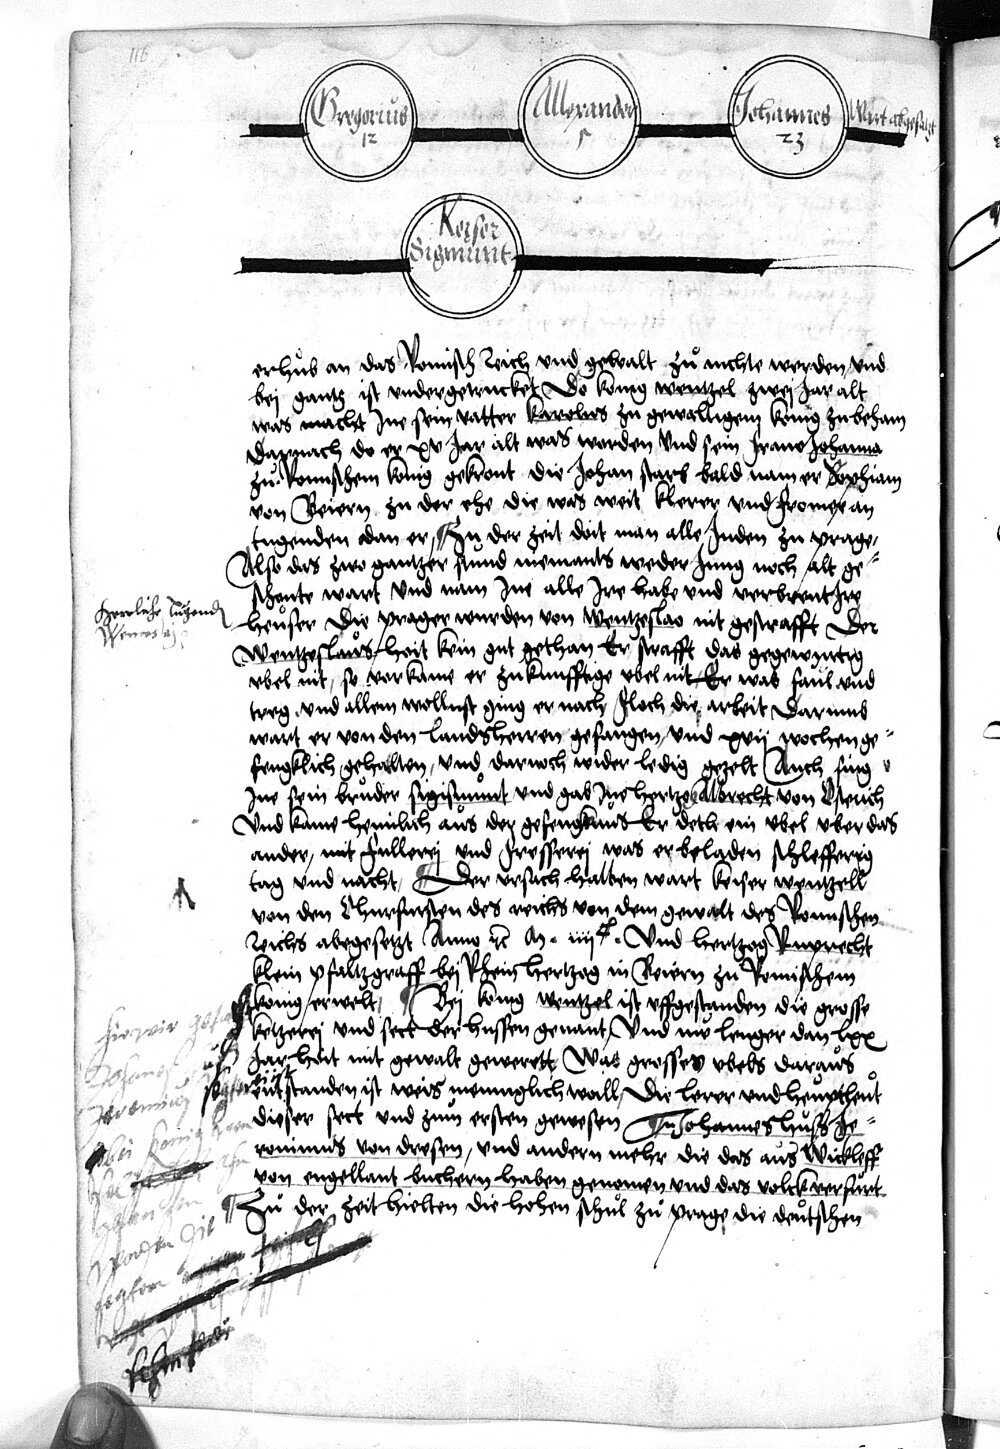 116
Gregorius 12
Allexander 5
Johannes 23
Wirt abgesatzt
Keiser Sigmunt
erhub an das Romisch Reich vnd gewalt zu nichte werden vnd
bei gantz ist vndergetrucket Do konig wentzel zwei Jar alt
was macht Ine sein vatter karolus zu gewalligem konig zu beham
Darnach do er xv Jar alt was worden Vnd sein frawe Johanna
zu Romischem konig gekront die Johan starb bald nam er Sophiam
von Beiern zu der ehe die was weit klerer vnd fromer an
tugenden dan er Zu der zeit doit man alle Juden zu prage
Also das zwo gantzer stund niemants weder Jung noch alt ge=
schonte wart Vnd nam Ine alle Ire habe vnd verbrent Ire
heuser Die prager wurden von Wentzeslao nit gestrafft Der
Wentzeslaus hoit kein gut gethan Er strafft das gegewurtig
vbel nit, so vorkame er zukunfftige vbel nit Er was faul vnd
treg vnd allem wollust ging er nach floch die arbeit Darumb
wart er von den Landsherren gefangen, vnd xvii wochen ge=
fengklich gehalten, vnd darnoch wider ledig gezelt Auch fing
Ine sein bruder sigismunt vnd gab Ine hertzog Albrecht von Osterich
Vnd kame heimlich aus der gefengknus Er deth ein vbel vber das
ander, mit fullerej vnd fresserej was er beladen schlefferig
tag vnd nacht, Der vrsach halben wart keiser wentzell
von den Churfursten des reichs von dem gewalt des Romischen
Reichs abegesetzt Anno Vnd hertzog Ruprecht
klein pfaltzgraff bej Rhein hertzog in Beiern zu Romischem
konig erwelt, Bej konig wentzel ist vffgestanden die grosse
ketzerej vnd sect der hussen genant, Vnd nu lenger dan lxx
Jar hait mit gewalt gewerett Was grosses vbels daraus
entstanden ist weis menniglich wall, Die lerer vnd heuptleut
dieser sect vnd zum ersten gewesen Johannes huss Je=
ronimus von dresen, vnd andern mehr die das aus Wickleff
von engellant buchern haben genomen vnd das volck verfurt
Zu der zeit hielten die hohen schul zu prage die deutschen
Herrliche Tugend